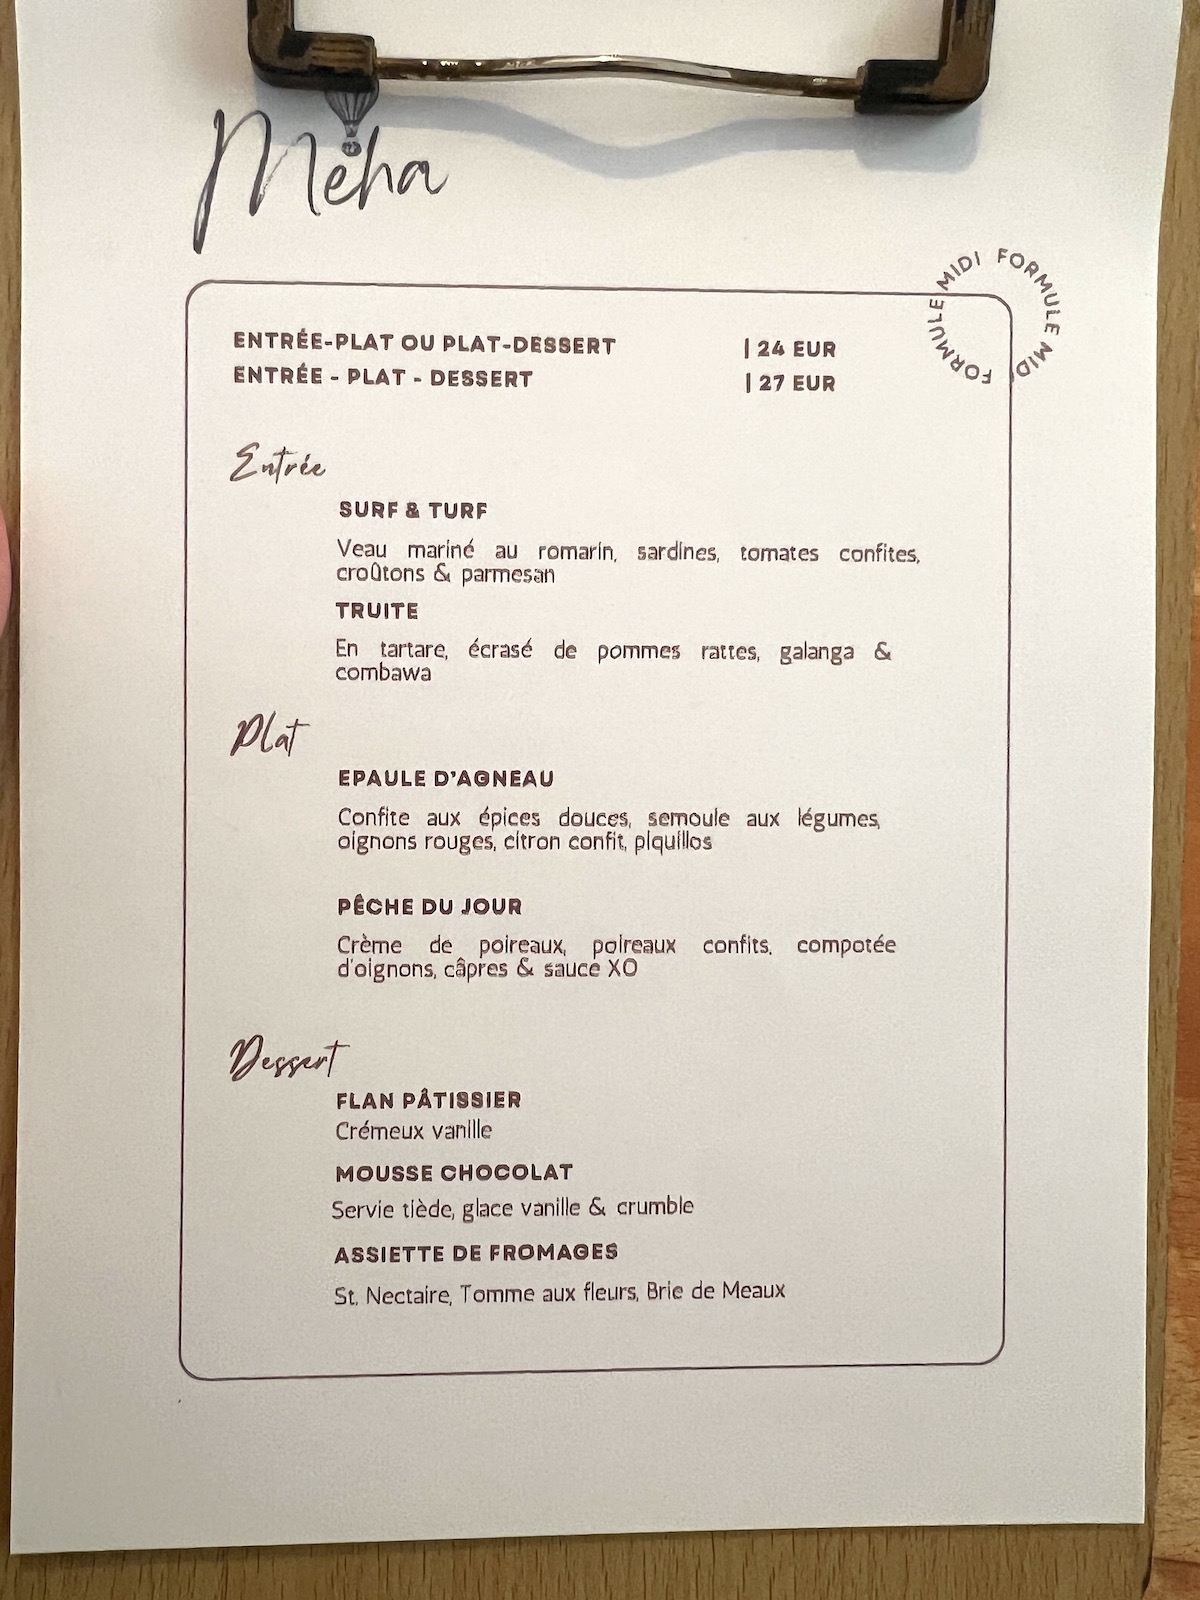 Mëha
FORMULE MIDI FORMULE MIDI
ENTRÉE-PLAT OU PLAT-DESSERT | 24 EUR
ENTRÉE - PLAT - DESSERT | 27 EUR
Entrée
SURF & TURF
Veau mariné au romarin, sardines, tomates confites,
croûtons & parmesan
TRUITE
En tartare, écrasé de pommes rattes, galanga &
combawa
Plat
EPAULE D'AGNEAU
Confite aux épices douces, semoule aux légumes,
oignons rouges, citron confit, piquillos
PÊCHE DU JOUR
Crème de poireaux, poireaux confits, compotée
d'oignons, câpres & sauce XO
Dessert
FLAN PÂTISSIER
Crémeux vanille
MOUSSE CHOCOLAT
Servie tiède, glace vanille & crumble
ASSIETTE DE FROMAGES
St. Nectaire, Tomme aux fleurs, Brie de Meaux